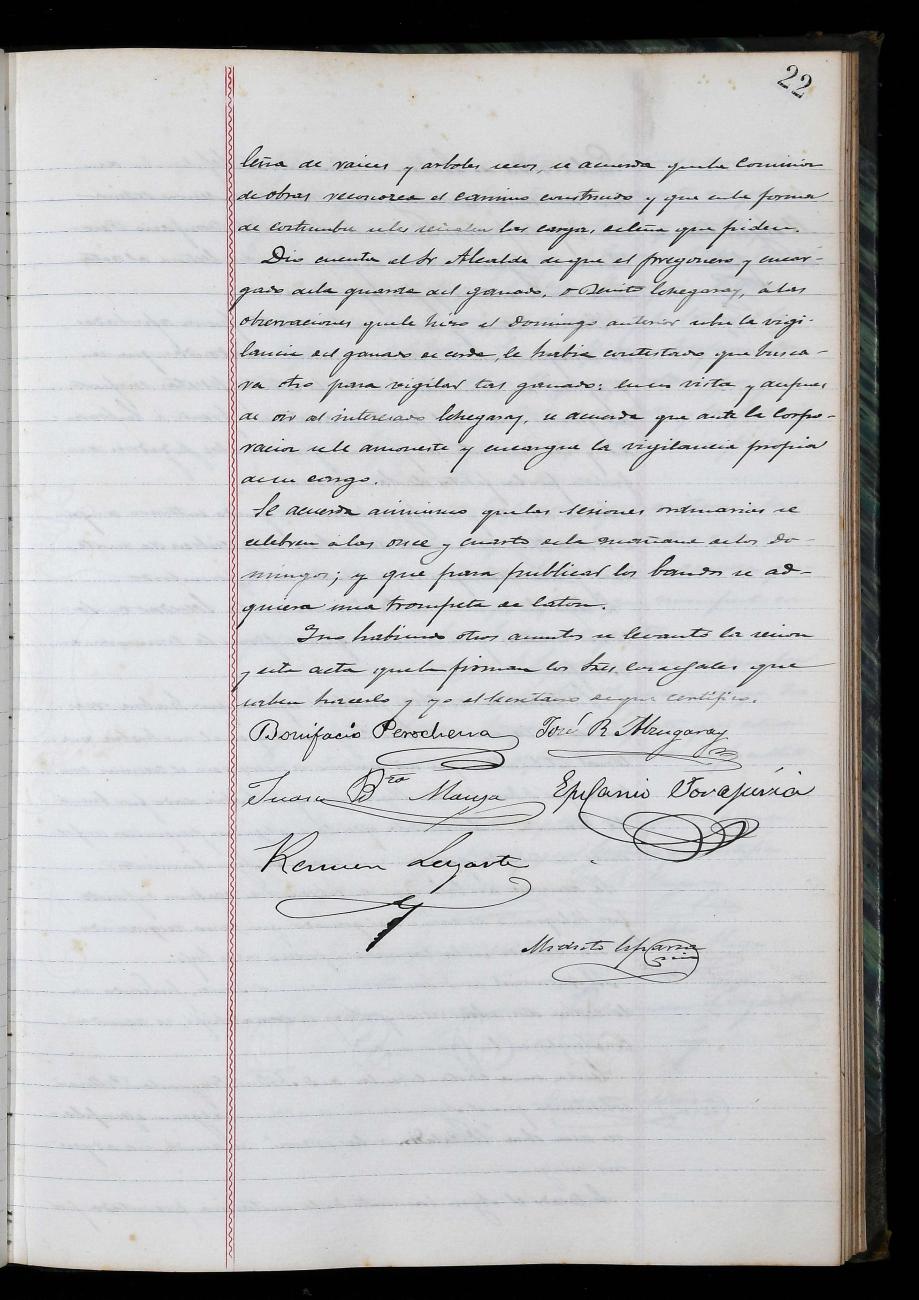 22
leña de raices y arboles secos, se acuerda que la Comision
de obras reconozca el camino construido y que en la forma
de costumbre se les señalen las cargas, de leña que piden.
Dio cuenta el Sr Alcalde de que el pregonero y encar-
gado de la guarda del ganado, D Benito Echegaray, á las
observaciones que le hizo el domingo anterior sobre la vigi-
lancia del ganado de cerda, le habia contestado que busca-
ra otro para vigilar tal ganado: en su vista y despues
de oir al interesado Echegaray, se acuerda que ante la Corpo-
racion se le amoneste y encargue la vigilancia propia
de su cargo.
Se acuerda asimismo que las sesiones ordinarias se
celebren á las once y cuarto de la mañana de los do-
mingos; y que para publicar los bandos se ad-
quiera una trompeta de laton.
Y no habiendo otros asuntos se levantó la sesion
y esta acta que la firman los Sres. concejales que
saben hacerlo y yo el Secretario de que certifico.
Bonifacio Perochena José R Alzugaray
Juan Bta Maya Epifanio
Fermin Legarte
Modesto Esparza